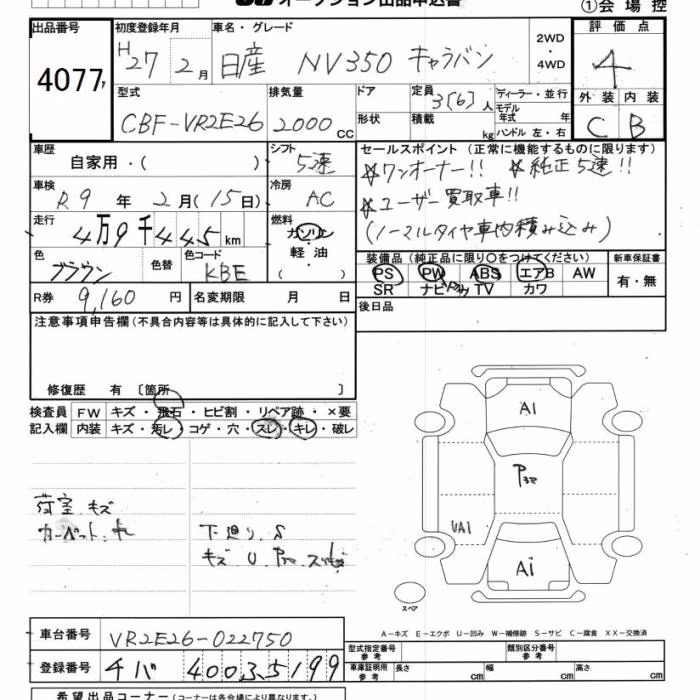 オークション出品申込書
①会場控
出品番号 初度登録年月 車名・グレード 2WD ・ 4WD 評価点
4077 H27 2月 日産 NV350 キャラバン 4
型式 排気量 ドア 定員 3[6]人 ディーラー・並行 外装 内装
CBF-VR2E26 2000CC 形状 積載 kg モデル年式 年 ハンドル 左・右 C B
車歴 シフト セールスポイント(正常に機能するものに限ります)
自家用・( ) 5速 ☆ワンオーナー!! ☆純正5速!!
車検 冷房 ☆ユーザー買取車!!
R9年2月(15日) AC (ノーマルタイヤ車内積み込み)
走行 4万9千445km 燃料 ガソリン・軽油 ( )
色 ブラウン 色替 色コード KBE
装備品(純正品に限り○をつけてください) 新車保証書
PS PW ABS エアB AW 有・無
SR ナビ TV カワ
R券 9,160円 名変期限 月 日
後日品
注意事項申告欄(不具合内容等は具体的に記入して下さい)
修復歴 有 [箇所 ]
検査員 FW キズ・飛石・ヒビ割・リペア跡・×要
記入欄 内装 キズ・汚レ・コゲ・穴・スレ・キレ・破レ
A1
UA1
A1
荷室 キズ
カーペット キレ
下廻り S
キズ U
スペア
A-キズ E-エクボ U-凹み W-補修跡 S-サビ C-腐食 XX-交換済
車台番号 VR2E26-022750
登録番号 チバ 400 3 5199
型式指定番号 参考 類別区分番号 参考
車庫証明用 参考 長さ cm 幅 cm 高さ cm
希望出品コーナー(コーナーは各会場により異なります。)